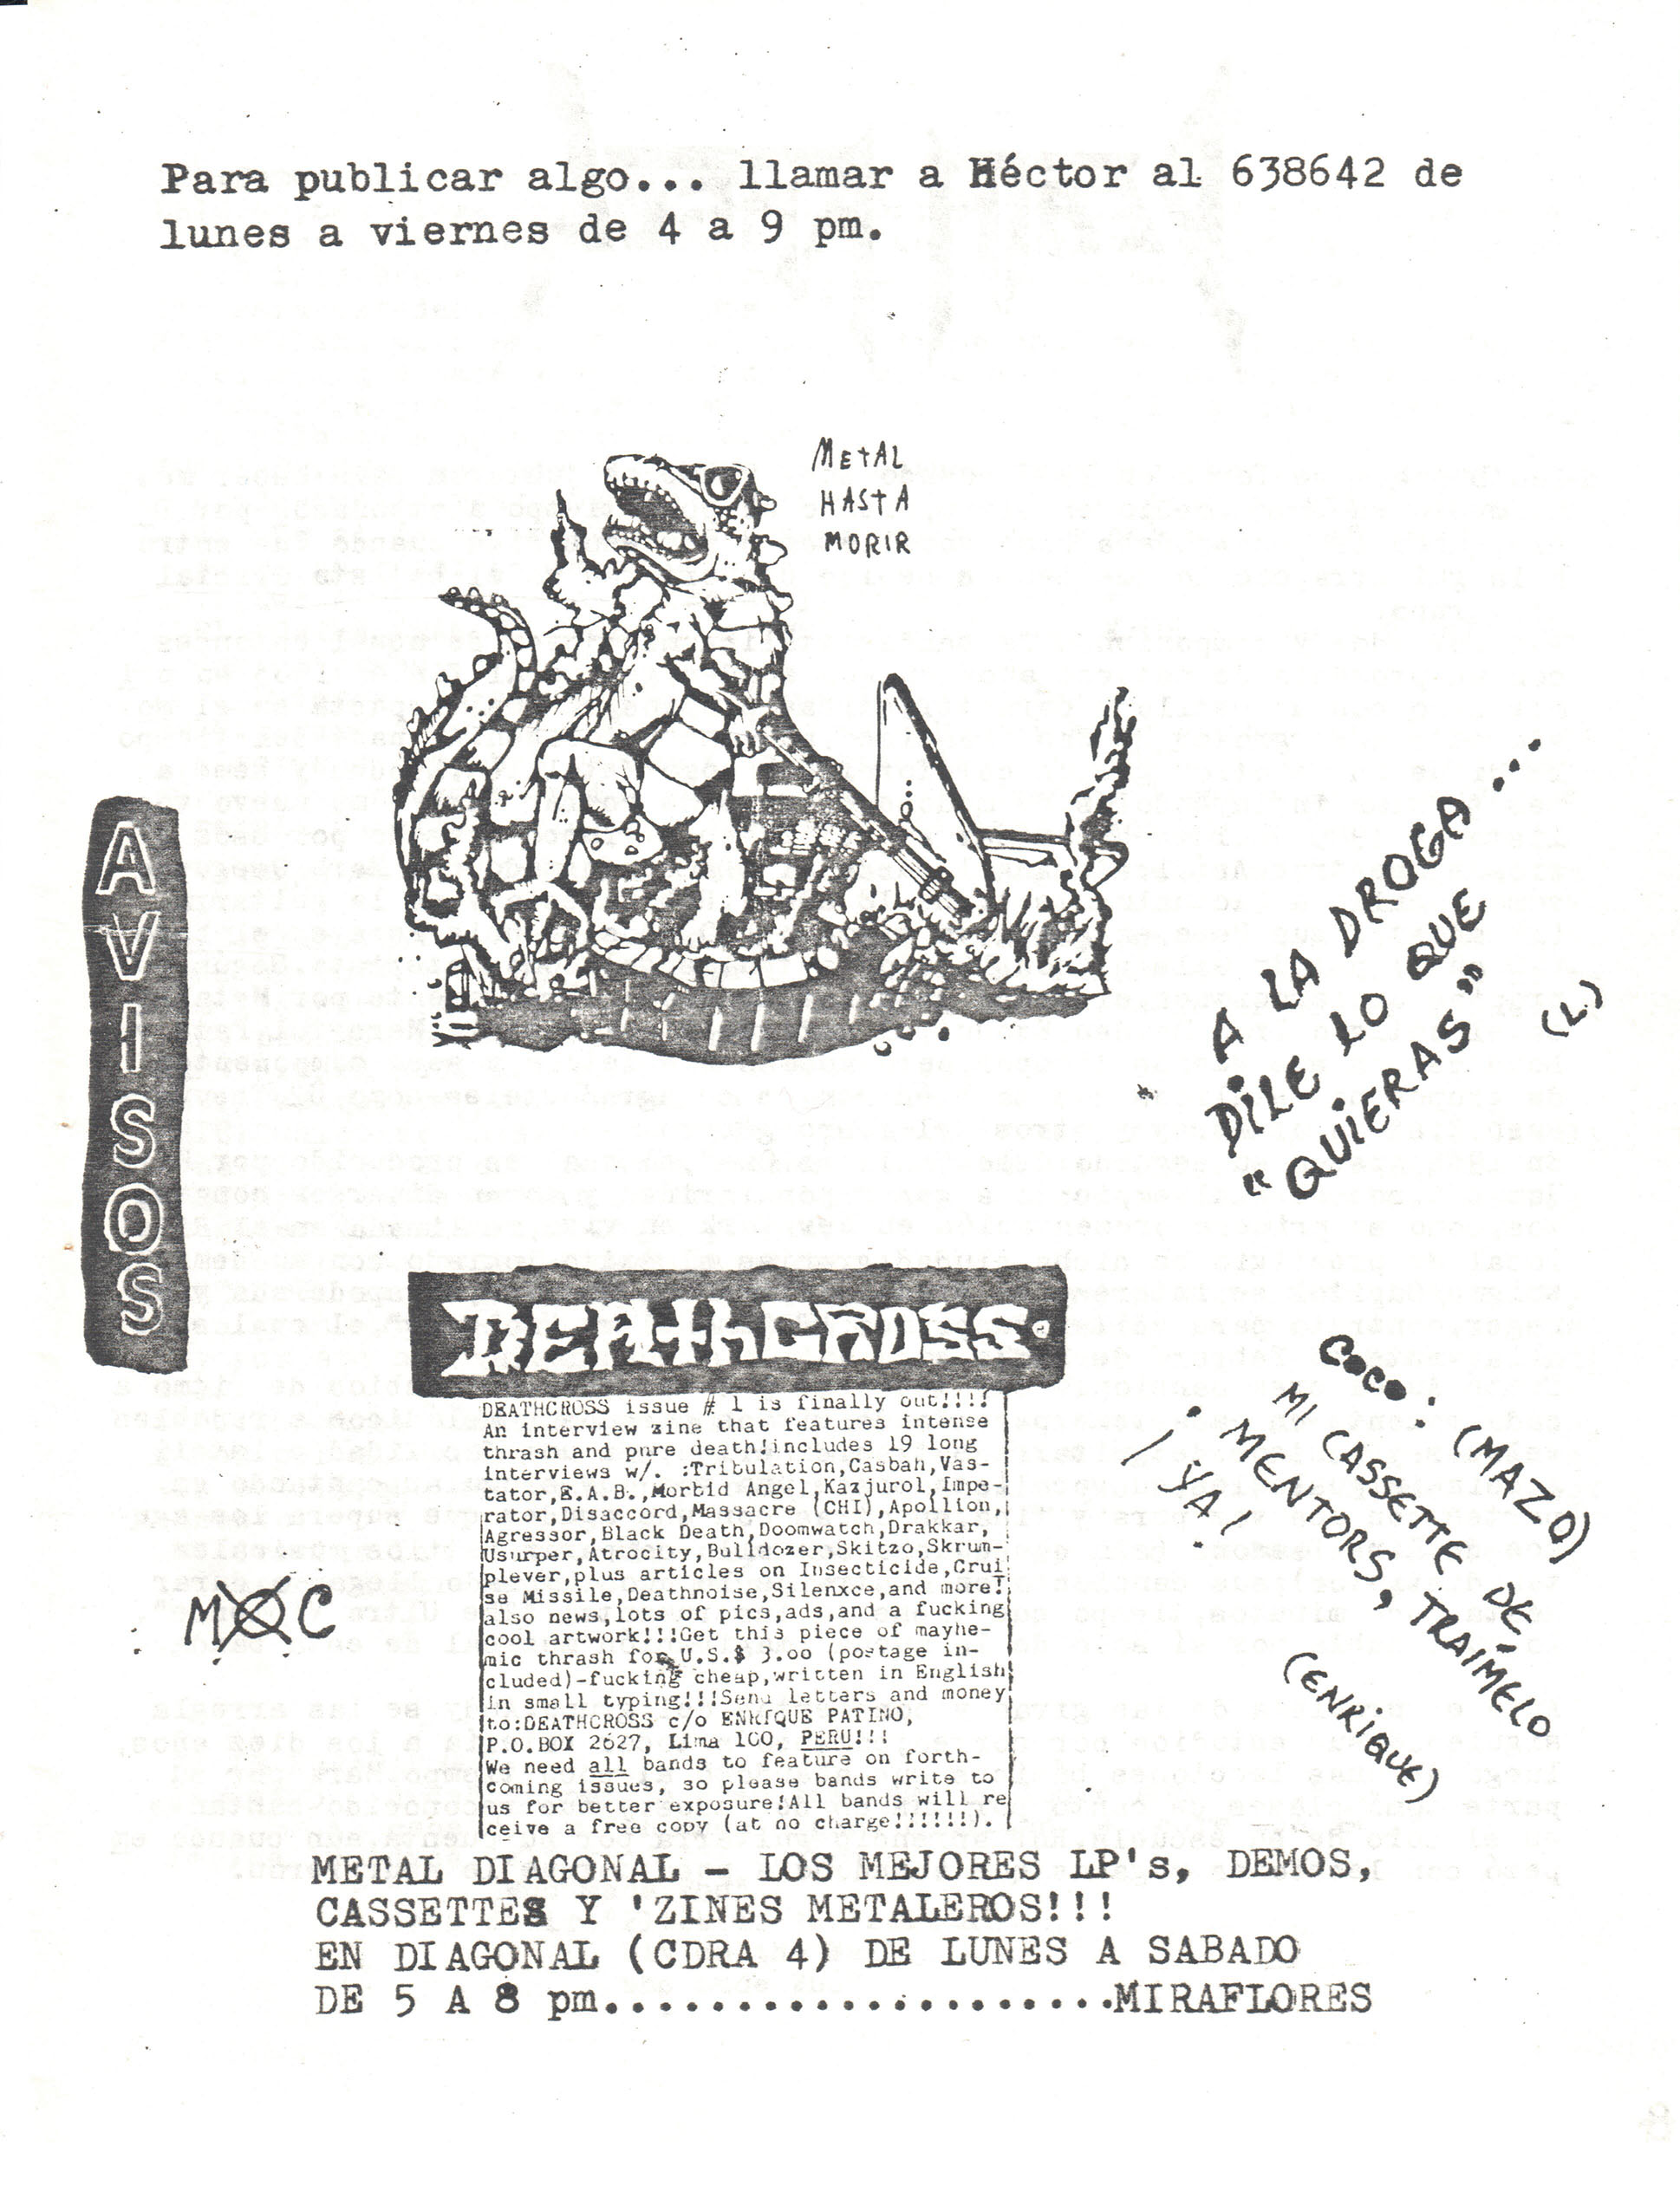 Para publicar algo... llamar a Héctor al 638642 de
lunes a viernes de 4 a 9 pm.
METAL
HASTA
MORIR
AVISOS
A LA DROGA...
DILE LO QUE
"QUIERAS"
(L)
DEATHCROSS.
DEATHCROSS issue # 1 is finally out!!!!
An interview zine that features intense
thrash and pure death!includes 19 long
interviews w/. :Tribulation,Casbah,Vas-
tator,E.A.B.,Morbid Angel,Kazjurol,Impe-
rator,Disaccord,Massacre (CHI),Apollion,
Agressor,Black Death,Doomwatch,Drakkar,
Usurper,Atrocity,Bulldozer,Skitzo,Skrum-
plever,plus articles on Insecticide,Crui
se Missile,Deathnoise,Silenxce,and more!
also news,lots of pics,ads,and a fucking
cool artwork!!!Get this piece of mayhe-
mic thrash for U.S.$ 3.oo (postage in-
cluded)-fucking cheap,written in English
in small typing!!!Send letters and money
to:DEATHCROSS c/o ENRIQUE PATINO,
P.O.BOX 2627, Lima 100, PERU!!!
We need all bands to feature on forth-
coming issues, so please bands write to
us for better exposure!All bands will re
ceive a free copy (at no charge!!!!!!).
COCO: (MAZO)
MI CASSETTE DE
MENTORS, TRAIMELO
¡YA!
(ENRIQUE)
MOC
METAL DIAGONAL - LOS MEJORES LP's, DEMOS,
CASSETTES Y 'ZINES METALEROS!!!
EN DIAGONAL (CDRA 4) DE LUNES A SABADO
DE 5 A 8 pm.....................MIRAFLORES